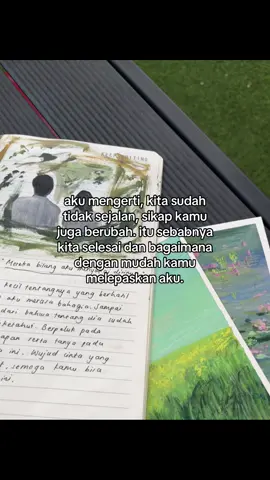 aku mengerti, kita sudah
tidak sejalan, sikap kamu
juga berubah. itu sebabnya
kita selesai dan bagaimana
dengan mudah kamu
melepaskan aku.
Mereka bilang aku
kecil tentangnya yang berhasil
aku merasa bahagia. Sampai
dari, bahwa tentang dia sudah
Berpeluk pada
tanpa pada
ini. Wujud cinta yang
semoga kamu bisa
ini.